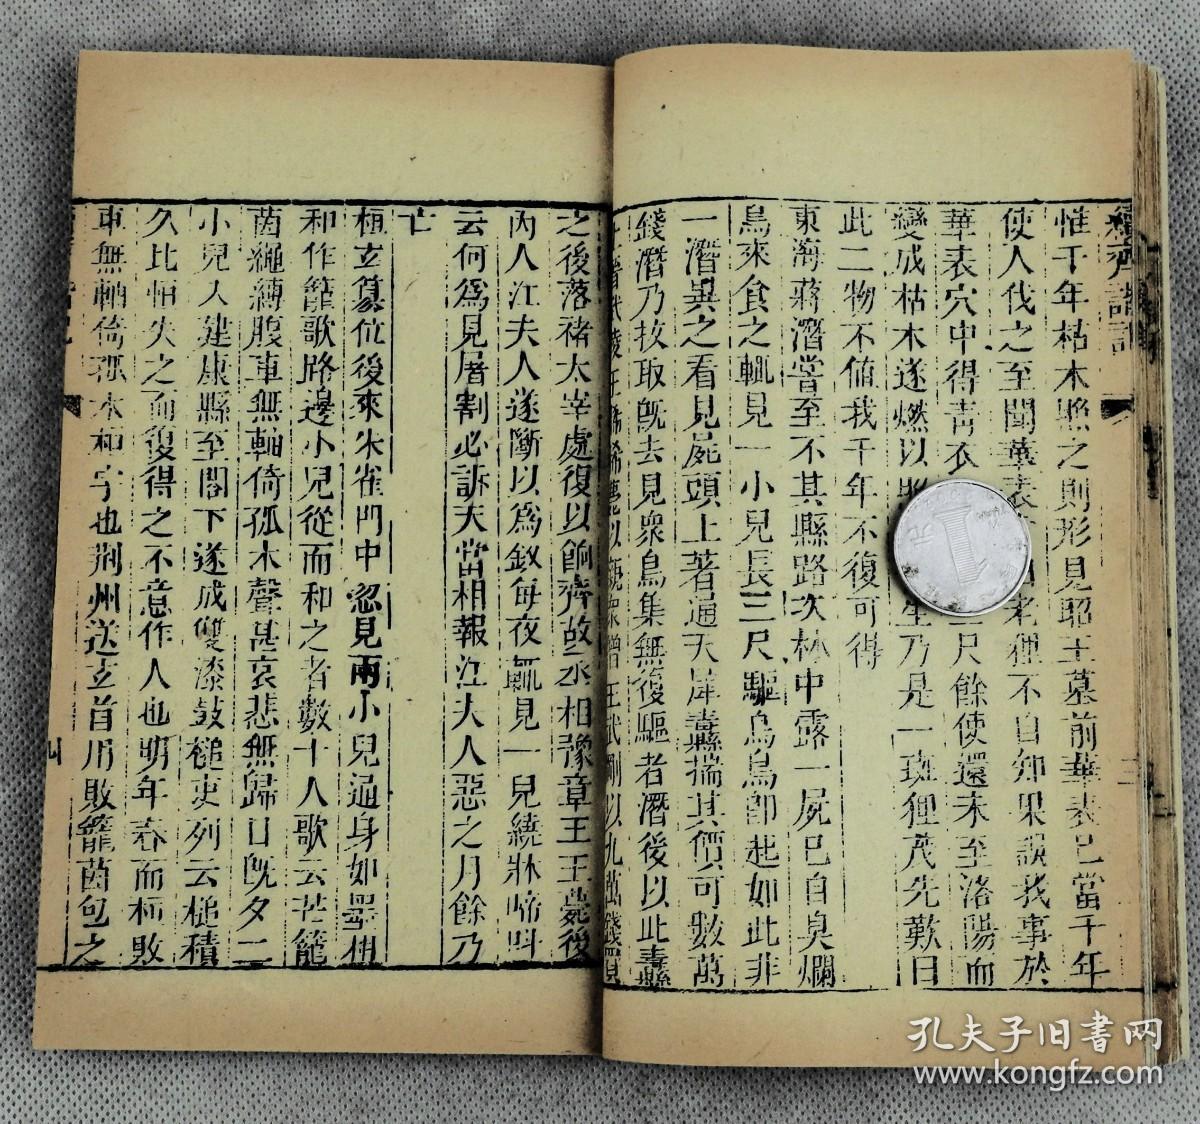 續齊諧記
三
惟千年枯木照之則形見昭王墓前華表已當千年
使人伐之至聞華表老狸不自知果誤我事於
華表穴中得青衣尺餘使還未至洛陽而
變成枯木遂燃以照乃是一斑狸茂先歎曰
此二物不值我千年不復可得
東海蔣潛嘗至不其縣路次林中露一屍已自臭爛
鳥來食之輒見一小兒長三尺驅鳥鳥卽起如此非
一潛異之看見屍頭上著通天犀纛揣其價可數萬
錢潛乃拔取旣去見衆鳥集無復驅者潛後以此纛
上晉武陵王晞晞薨以襯衆僧王武剛以九萬錢買
之後落褚太宰處復以餉齊故丞相豫章王王薨後
內人江夫人遂斷以爲釵每夜輒見一兒繞牀啼叫
云何爲見屠割必訴天當相報江夫人惡之月餘乃
亡
桓玄篡位後來朱雀門中忽見兩小兒通身如墨相
和作籠歌路邊小兒從而和之者數十人歌云芒籠
茵繩縛腹車無軸倚孤木聲甚哀悲無歸日旣夕二
小兒入建康縣至閣下遂成雙漆鼓槌吏列云槌積
久比恒失之而復得之不意作人也明年春而桓敗
車無軸倚孤木桓字也荆州送玄首用敗籠茵包之
四
孔夫子旧书网
www.kongfz.com